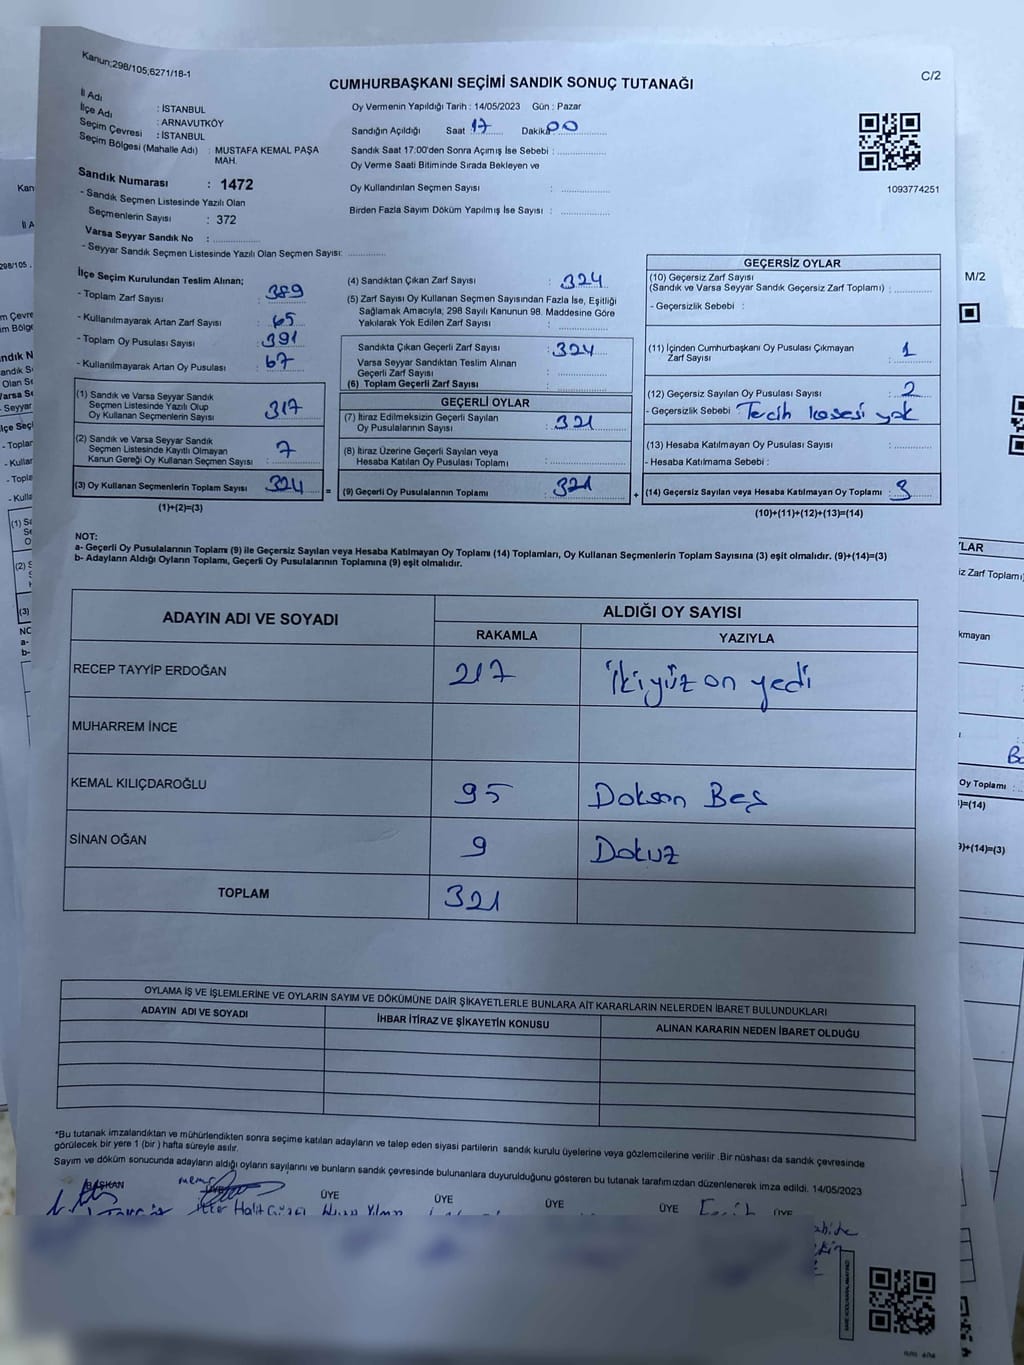 Kanun;298/105;6271/18-1
C/2
CUMHURBAŞKANI SEÇİMİ SANDIK SONUÇ TUTANAĞI
İl Adı : İSTANBUL
İlçe Adı : ARNAVUTKÖY
Seçim Çevresi : İSTANBUL
Seçim Bölgesi (Mahalle Adı) : MUSTAFA KEMAL PAŞA
MAH.
Sandık Numarası : 1472
- Sandık Seçmen Listesinde Yazılı Olan
Seçmenlerin Sayısı : 372
Varsa Seyyar Sandık No : ................
- Seyyar Sandık Seçmen Listesinde Yazılı Olan Seçmen Sayısı: ............
Oy Vermenin Yapıldığı Tarih : 14/05/2023 Gün : Pazar
Sandığın Açıldığı Saat 17 Dakika 00
Sandık Saat 17:00'den Sonra Açımış İse Sebebi : ................
Oy Verme Saati Bitiminde Sırada Bekleyen ve
Oy Kullandırılan Seçmen Sayısı : ................
Birden Fazla Sayım Döküm Yapılmış İse Sayısı : ................
1093774251
İlçe Seçim Kurulundan Teslim Alınan;
- Toplam Zarf Sayısı : 389
- Kullanılmayarak Artan Zarf Sayısı : 65
- Toplam Oy Pusulası Sayısı : 391
- Kullanılmayarak Artan Oy Pusulası : 67
(1) Sandık ve Varsa Seyyar Sandık
Seçmen Listesinde Yazılı Olup
Oy Kullanan Seçmenlerin Sayısı : 317
(2) Sandık ve Varsa Seyyar Sandık
Seçmen Listesinde Kayıtlı Olmayan
Kanun Gereği Oy Kullanan Seçmen Sayısı : 7
(3) Oy Kullanan Seçmenlerin Toplam Sayısı 324
(1)+(2)=(3)
(4) Sandıktan Çıkan Zarf Sayısı : 324
(5) Zarf Sayısı Oy Kullanan Seçmen Sayısından Fazla İse, Eşitliği
Sağlamak Amacıyla; 298 Sayılı Kanunun 98. Maddesine Göre
Yakılarak Yok Edilen Zarf Sayısı : ................
Sandıkta Çıkan Geçerli Zarf Sayısı : 324
Varsa Seyyar Sandıktan Teslim Alınan
Geçerli Zarf Sayısı : ................
(6) Toplam Geçerli Zarf Sayısı : ................
GEÇERLİ OYLAR
(7) İtiraz Edilmeksizin Geçerli Sayılan
Oy Pusulalarının Sayısı : 321
(8) İtiraz Üzerine Geçerli Sayılan veya
Hesaba Katılan Oy Pusulası Toplamı : ................
= (9) Geçerli Oy Pusulalarının Toplamı : 321 +
GEÇERSİZ OYLAR
(10) Geçersiz Zarf Sayısı
(Sandık ve Varsa Seyyar Sandık Geçersiz Zarf Toplamı) : ............
- Geçersizlik Sebebi :
(11) İçinden Cumhurbaşkanı Oy Pusulası Çıkmayan
Zarf Sayısı : 1
(12) Geçersiz Sayılan Oy Pusulası Sayısı : 2
- Geçersizlik Sebebi Tercih kasesi yok
(13) Hesaba Katılmayan Oy Pusulası Sayısı : ............
- Hesaba Katılmama Sebebi :
(14) Geçersiz Sayılan veya Hesaba Katılmayan Oy Toplamı : 3
(10)+(11)+(12)+(13)=(14)
NOT:
a- Geçerli Oy Pusulalarının Toplamı (9) ile Geçersiz Sayılan veya Hesaba Katılmayan Oy Toplamı (14) Toplamları, Oy Kullanan Seçmenlerin Toplam Sayısına (3) eşit olmalıdır. (9)+(14)=(3)
b- Adayların Aldığı Oyların Toplamı, Geçerli Oy Pusulalarının Toplamına (9) eşit olmalıdır.
ADAYIN ADI VE SOYADI ALDIĞI OY SAYISI
RAKAMLA YAZIYLA
RECEP TAYYİP ERDOĞAN 217 İkiyüz on yedi
MUHARREM İNCE
KEMAL KILIÇDAROĞLU 95 Doksan Beş
SİNAN OĞAN 9 Dokuz
TOPLAM 321
OYLAMA İŞ VE İŞLEMLERİNE VE OYLARIN SAYIM VE DÖKÜMÜNE DAİR ŞİKAYETLERLE BUNLARA AİT KARARLARIN NELERDEN İBARET BULUNDUKLARI
ADAYIN ADI VE SOYADI İHBAR İTİRAZ VE ŞİKAYETİN KONUSU ALINAN KARARIN NEDEN İBARET OLDUĞU
*Bu tutanak imzalandıktan ve mühürlendikten sonra seçime katılan adayların ve talep eden siyasi partilerin sandık kurulu üyelerine veya gözlemcilerine verilir .Bir nüshası da sandık çevresinde
görülecek bir yere 1 (bir ) hafta süreyle asılır.
Sayım ve döküm sonucunda adayların aldığı oyların sayılarını ve bunların sandık çevresinde bulunanlara duyurulduğunu gösteren bu tutanak tarafımızdan düzenlenerek imza edildi. 14/05/2023
BAŞKAN ÜYE ÜYE ÜYE ÜYE ÜYE
M/2